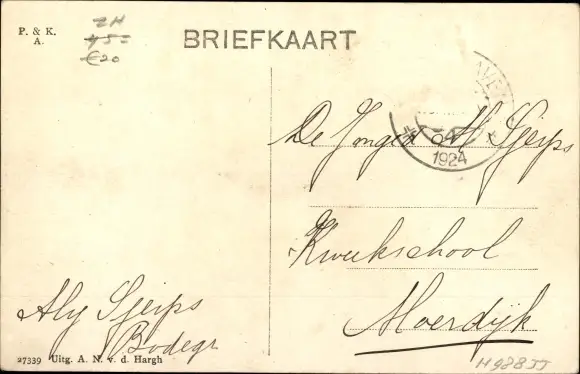 P. & K.
A.
ZH
45=
€20
BRIEFKAART
4
1924
De Jonge H. Sjerps
Kweekschool
Moerdijk
Aly Sjerps
Bodegr
27339 Uitg. A. N. v. d. Hargh
H988JJ